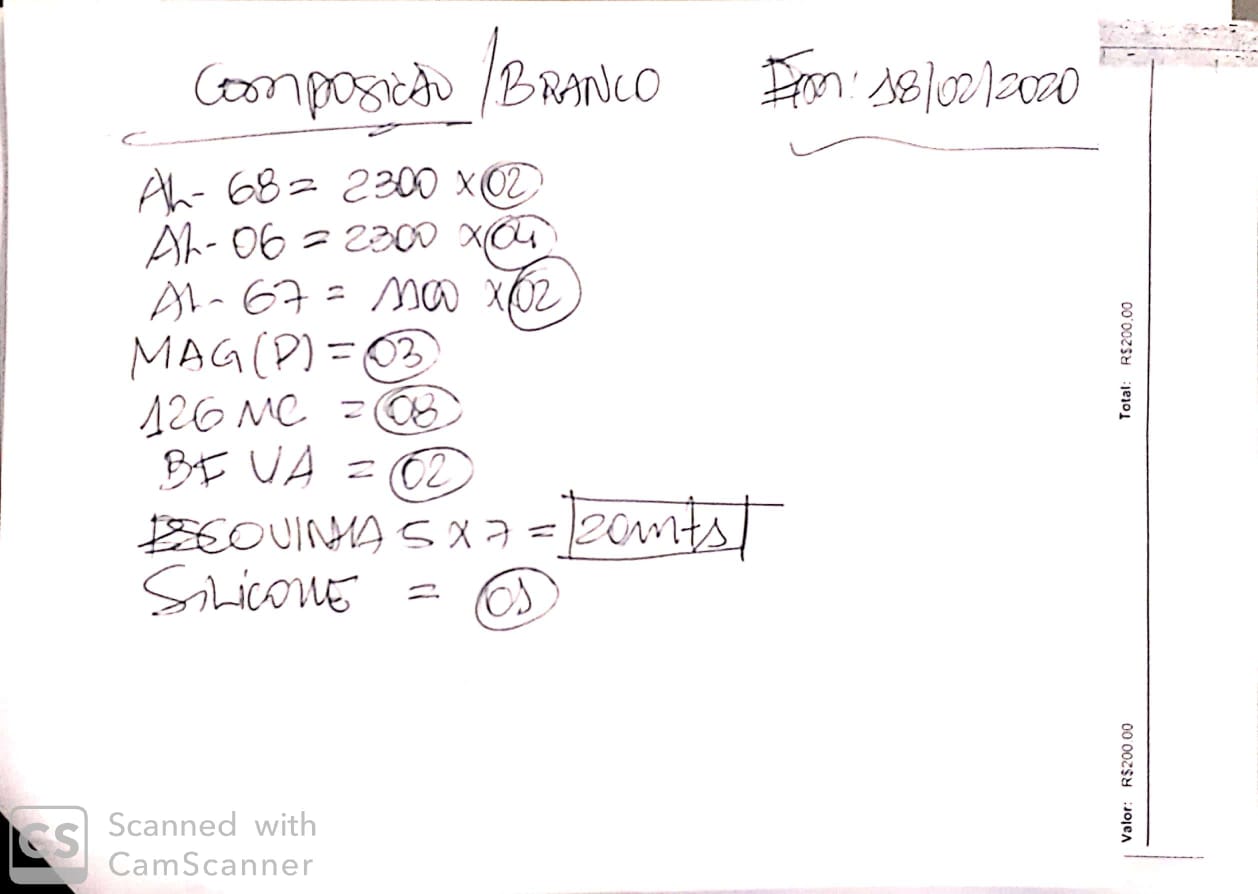 COMPOSICÃO / BRANCO
Em: 18/02/2020
AL- 68 = 2300 x 02
AL- 06 = 2300 x 04
AL- 67 = 1100 x 02
MAG(P) = 03
126 MC = 08
BF VA = 02
ESCOVINHA 5 X 7 = 20mts
SILICONE = 01
Total: R$200,00
Valor: R$200,00
CS
Scanned with
CamScanner